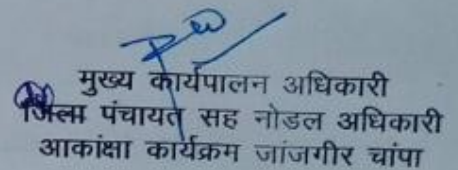 मुख्य कार्यपालन अधिकारी
जिला पंचायत सह नोडल अधिकारी
आकांक्षा कार्यक्रम जांजगीर चांपा